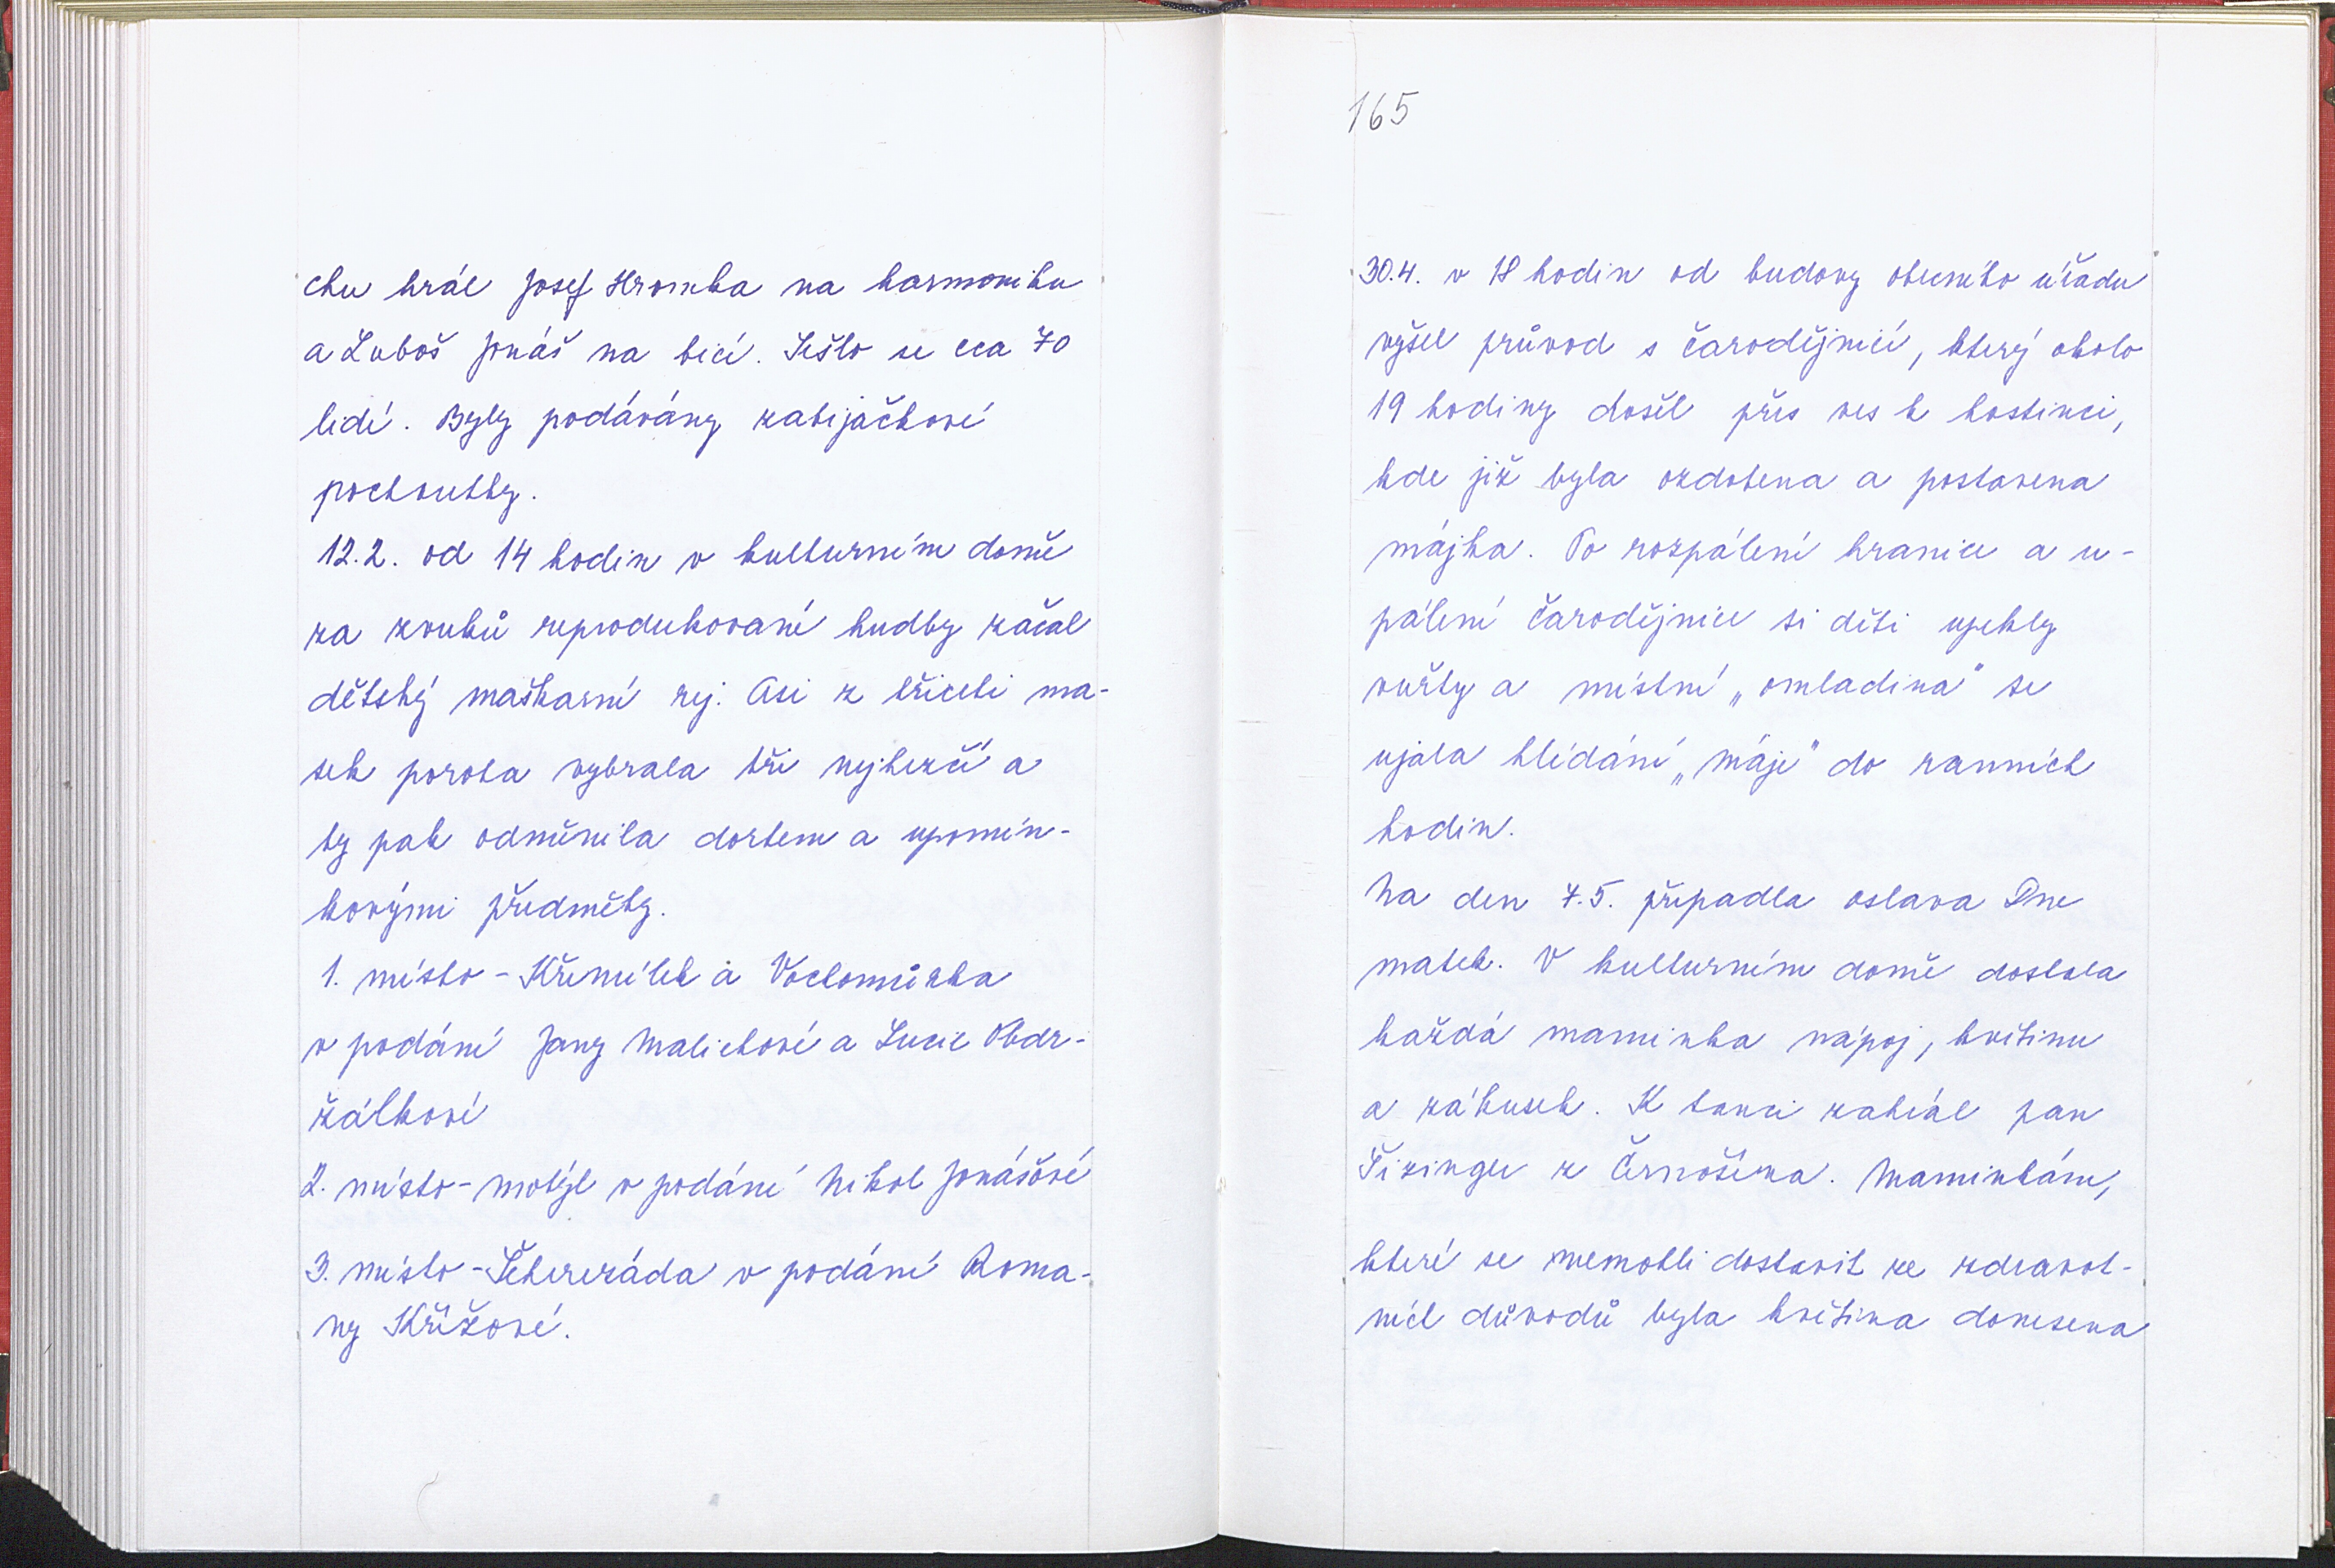 chu hrál Josef Hromka na harmoniku
a Luboš Jonáš na bicí. Sešlo se cca 70
lidí. Byly podávány zabijačkové
pochoutky.
12.2. od 14 hodin v kulturním domě
za zvuků reprodukované hudby začal
dětský maškarní rej. Asi z třiceti ma-
sek porota vybrala tři nejhezčí a
ty pak odměnila dortem a upomín-
kovými předměty.
1. místo - Křemílek a Vochomůrka
v podání Jany Malichové a Lucie Obdr-
žálkové
2. místo - motýl v podání Nikol Jonášové
3. místo - Šeherezáda v podání Roma-
ny Křížové.
165
30.4. v 18 hodin od budovy obecního úřadu
vyšel průvod s čarodějnicí, který okolo
19 hodiny došel přes ves k hostinci,
kde již byla ozdobena a postavena
májka. Po rozpálení hranice a u-
pálení čarodějnice si děti upekly
vuřty a místní „omladina" se
ujala hlídání „máje" do ranních
hodin.
Na den 7.5. připadla oslava Dne
matek. V kulturním domě dostala
každá maminka nápoj, květinu
a zákusek. K tanci zahrál pan
Šizingr z Černošína. Maminkám,
které se nemohli dostavit ze zdravot-
ních důvodů byla květina donesena